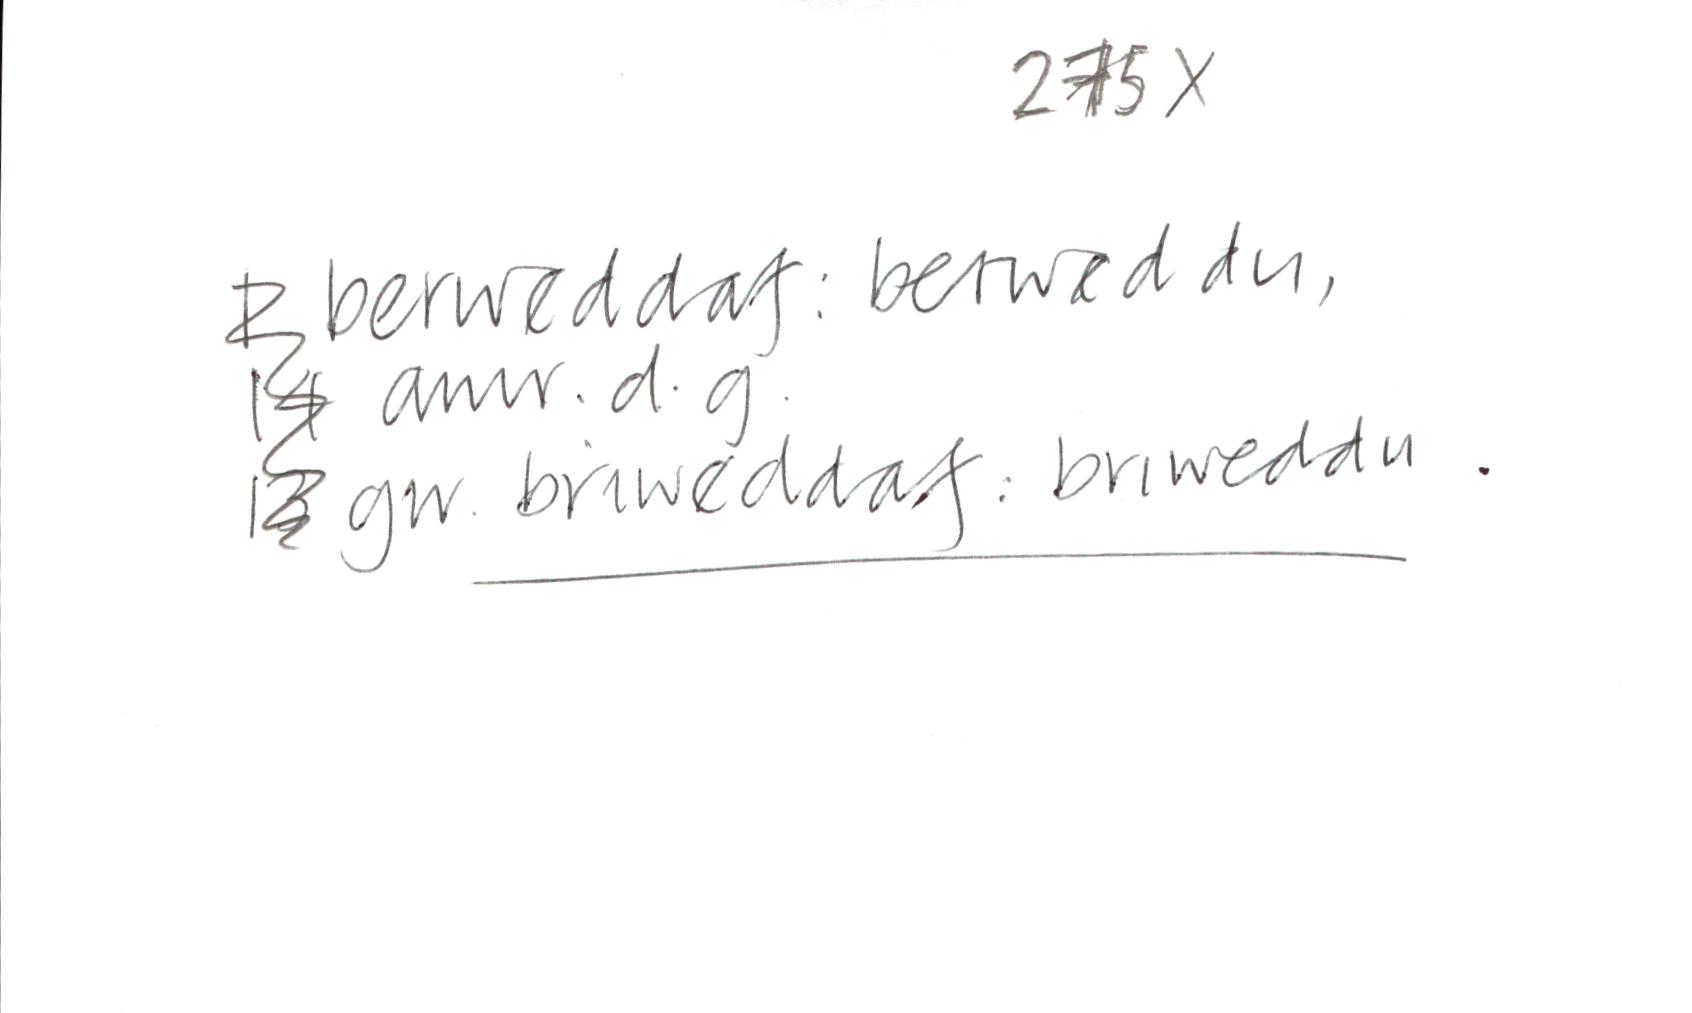 275 X
berweddaf: berweddu,
amr. d. g.
gw. briweddaf: briweddu.